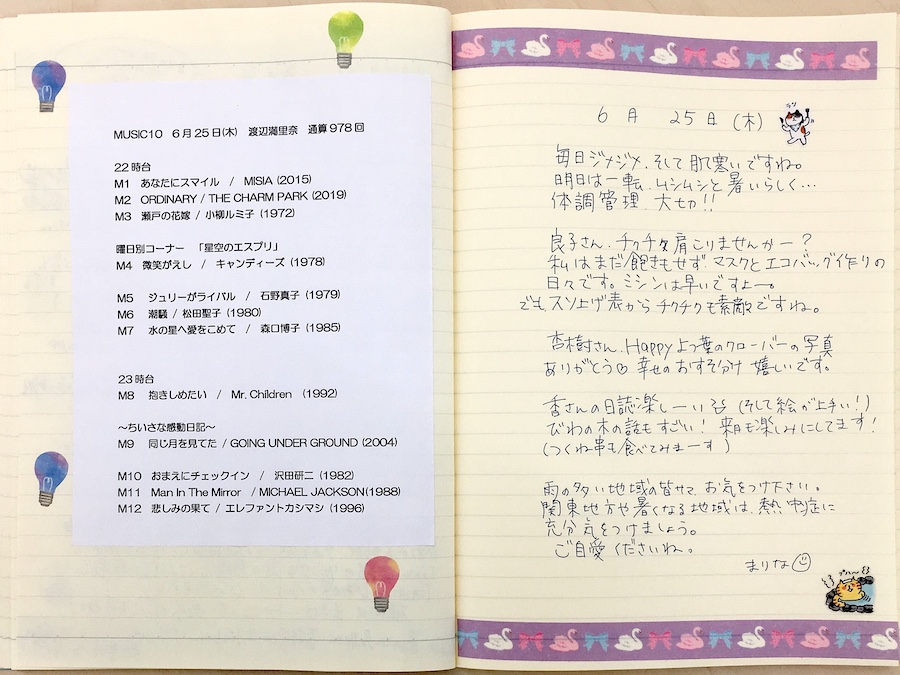 MUSIC10 6月25日(木) 渡辺満里奈 通算978回
22時台
M1 あなたにスマイル / MISIA (2015)
M2 ORDINARY / THE CHARM PARK (2019)
M3 瀬戸の花嫁 / 小柳ルミ子 (1972)
曜日別コーナー 「星空のエスプリ」
M4 微笑がえし / キャンディーズ (1978)
M5 ジュリーがライバル / 石野真子 (1979)
M6 潮騒 / 松田聖子 (1980)
M7 水の星へ愛をこめて / 森口博子 (1985)
23時台
M8 抱きしめたい / Mr. Children (1992)
～ちいさな感動日記～
M9 同じ月を見てた / GOING UNDER GROUND (2004)
M10 おまえにチェックイン / 沢田研二 (1982)
M11 Man In The Mirror / MICHAEL JACKSON(1988)
M12 悲しみの果て / エレファントカシマシ (1996)
6月 25日 (木)
毎日ジメジメ、そして肌寒いですね。
明日は一転、ムシムシと暑いらしく…
体調管理、大切!!
良子さん、チクチク肩こりませんかー?
私はまだ飽きもせず、マスクとエコバッグ作りの
日々です。ミシンは早いですよー。
でも、スソ上げ表からチクチクも素敵ですね。
杏樹さん、Happy よつ葉のクローバーの写真
ありがとう♡ 幸せのおすそ分け 嬉しいです。
香さんの日誌楽しーい (そして絵が上手い!)
びわの木の話もすごい! 来月も楽しみにしてます!
(つくね串も食べてみまーす)
雨の多い地域の皆サマ、お気をつけ下さい。
関東地方や暑くなる地域は、熱中症に
充分気をつけましょう。
ご自愛くださいね。
まりな